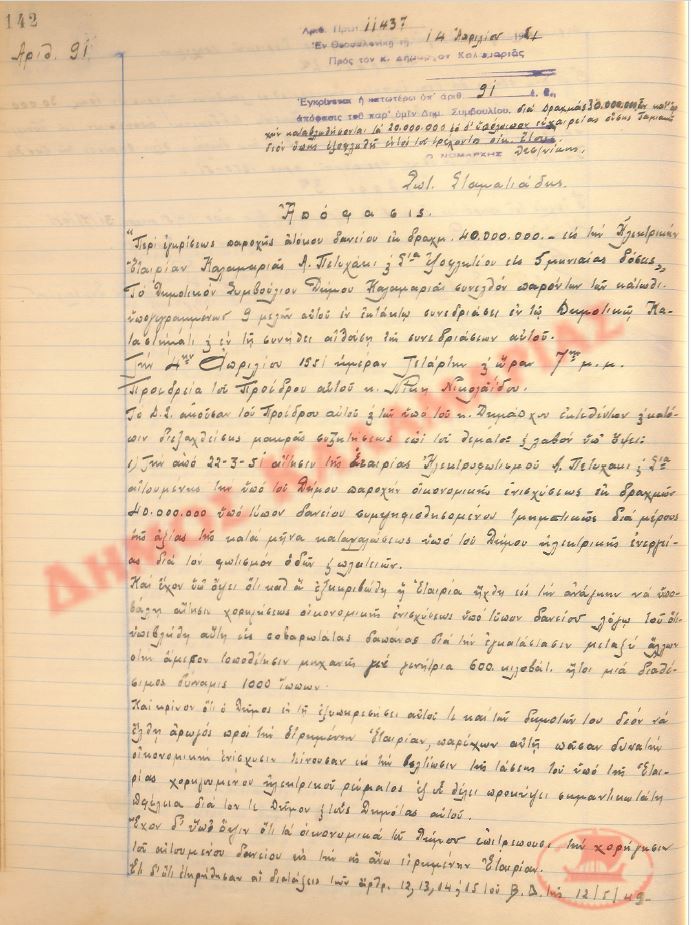 142
Αριθ. 91
Αριθ. Πρωτ. 11437
Ἐν Θεσσαλονίκῃ τῇ 14 Ἀπριλίου 1951
Πρὸς τὸν κ. Δήμαρχον Καλαμαριᾶς
Ἐγκρίνεται ἡ κατωτέρω ὑπ' ἀριθ. 91 ἐ. ἔ.
ἀπόφασις τοῦ παρ' ὑμῖν Δημ. Συμβουλίου, διὰ δραχμὰς 30.000.000
καταβληθησομένα 20.000.000 τὸ δ' ὑπόλοιπον εὐχερείας οὔσης Ταμιακῶς
ἐντὸς τοῦ τρέχοντος οἰκ. ἔτους
Ο ΝΟΜΑΡΧΗΣ Θεσ/νίκης
Σωτ. Σταματιάδης
Ἀπόφασις.
"Περὶ ἐγκρίσεως παροχῆς ἀτόκου δανείου ἐκ δραχμ. 40.000.000.- εἰς τὴν Ἠλεκτρικὴν
Ἑταιρίαν Καλαμαριᾶς Α. Πετυχάκι & Σία ἐξοφλητέου εἰς 5μηνιαίας δόσεις"
Τὸ Δημοτικὸν Συμβούλιον Δήμου Καλαμαριᾶς συνελθὸν παρόντων τῶν κάτωθι
ὑπογεγραμμένων 9 μελῶν αὐτοῦ ἐν ἐκτάκτῳ συνεδριάσει ἐν τῷ Δημοτικῷ Κα-
ταστήματι & ἐν τῇ συνήθει αἰθούσῃ τῶν συνεδριάσεων αὐτοῦ.
Τὴν 4ην Ἀπριλίου 1951 ἡμέραν Τετάρτην & ὥραν 7ην μ.μ.
Προεδρεία τοῦ Προέδρου αὐτοῦ κ. Νίκη Νικολαΐδου.
Τὸ Δ.Σ. ἀκοῦσαν τοῦ Προέδρου αὐτοῦ & τῶν ὑπὸ τοῦ κ. Δημάρχου ἐκτεθέντων & κατό-
πιν διεξαχθείσης μακρᾶς συζητήσεως ἐπὶ τοῦ θέματος & λαβὸν ὑπ' ὄψει:
1) Τὴν ἀπὸ 22-3-51 αἴτησιν τῆς Ἑταιρίας Ἠλεκτροφωτισμοῦ Α. Πετυχάκι & Σία
αἰτουμένης τὴν ὑπὸ τοῦ Δήμου παροχὴν οἰκονομικῆς ἐνισχύσεως ἐκ δραχμῶν
40.000.000 ὑπὸ τύπον δανείου συμψηφισθησομένου τμηματικῶς διὰ μέρους
τῆς ἀξίας τῆς κατὰ μῆνα καταναλώσεως ὑπὸ τοῦ Δήμου ἠλεκτρικῆς ἐνεργεί-
ας διὰ τὸν φωτισμὸν ὁδῶν & πλατειῶν.
Καὶ ἔχον ὑπ' ὄψει ὅτι καθ' ἃ ἐξηκριβώθη ἡ Ἑταιρία ἤχθη εἰς τὴν ἀνάγκην νὰ ὑπο-
βάλῃ αἴτησιν χορηγήσεως οἰκονομικῆς ἐνισχύσεως ὑπὸ τύπον δανείου λόγῳ τοῦ ὅτι
ὑπεβλήθη αὕτη εἰς σοβαρωτάτας δαπάνας διὰ τὴν ἐγκατάστασιν μεταξὺ ἄλλων
στὴν ἄμεσον τοποθέτησιν μηχανῆς μὲ γεννήτρια 600 κιλοβάτ. ἤτοι μιὰ διαθέ-
σιμος δύναμις 1000 ἵππων.
Καὶ κρίνον ὅτι ὁ Δῆμος ἐν τῇ ἐξυπηρετήσει αὐτοῦ τε καὶ τῶν δημοτῶν του δέον νὰ
ἔλθῃ ἀρωγὸς πρὸς τὴν εἰρημένην Ἑταιρίαν, παρέχων αὐτῇ πᾶσαν δυνατὴν
οἰκονομικὴν ἐνίσχυσιν τείνουσαν εἰς τὴν βελτίωσιν τῆς τάσεως τοῦ ὑπὸ τῆς Ἑται-
ρίας χορηγουμένου ἠλεκτρικοῦ ρεύματος ἐξ οὗ θέλει προκύψει σημαντικωτάτη
ὠφέλεια διὰ τὸν τε Δῆμον & τοὺς Δημότας αὐτοῦ.
Ἔχον δ' ὑπ' ὄψιν ὅτι τὰ οἰκονομικὰ τοῦ Δήμου ἐπιτρέπουσι τὴν χορήγησιν
τοῦ αἰτουμένου δανείου εἰς τὴν ὡς ἄνω εἰρημένην Ἑταιρίαν.
Ἐπειδὴ ἐτηρήθησαν αἱ διατάξεις τῶν ἄρθρ. 12, 13, 14 & 15 τοῦ Β.Δ. τῆς 12/5/49-
ΔΗΜΟΣ ΚΑΛΑΜΑΡΙΑΣ